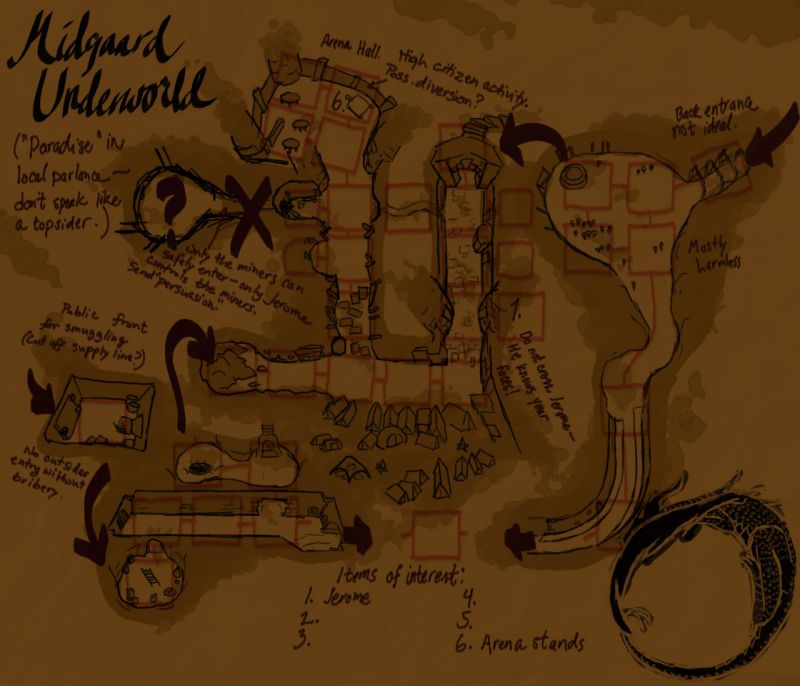 Midgaard
Underworld
("Paradise" in
local parlance—
don't speak like
a topsider.)
Arena Hall. High citizen activity.
Poss. diversion?
6.
Back entrance
not ideal.
?
X
Only the miners can
safely enter—only Jerome
controls the miners.
Send "persuasion."
Mostly
harmless
Public front
for smuggling
(Cut off supply line?)
1.
Do not cross Jerome—
He knows your
faces!
No outsider
entry without
bribery.
Items of interest:
1. Jerome
2.
3.
4.
5.
6. Arena stands